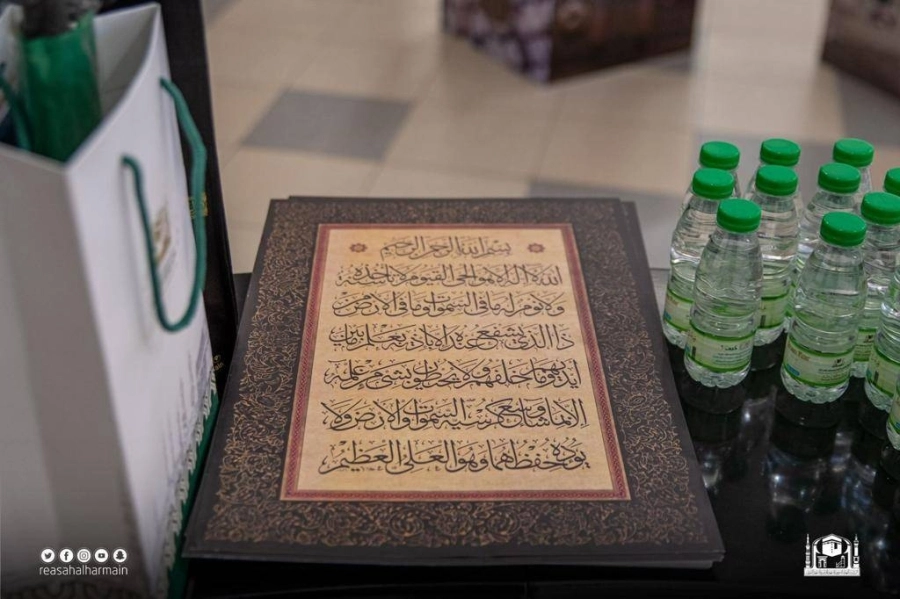 بسم الله الرحمن الرحيم
الله لا اله الا هو الحي القيوم لا تأخذه سنة
ولا نوم له ما في السموات وما في الارض من
ذا الذي يشفع عنده الا باذنه يعلم ما بين
ايديهم وما خلفهم ولا يحيطون بشيء من علمه
الا بما شاء وسع كرسيه السموات والارض ولا
يؤده حفظهما وهو العلي العظيم
reasahalharmain